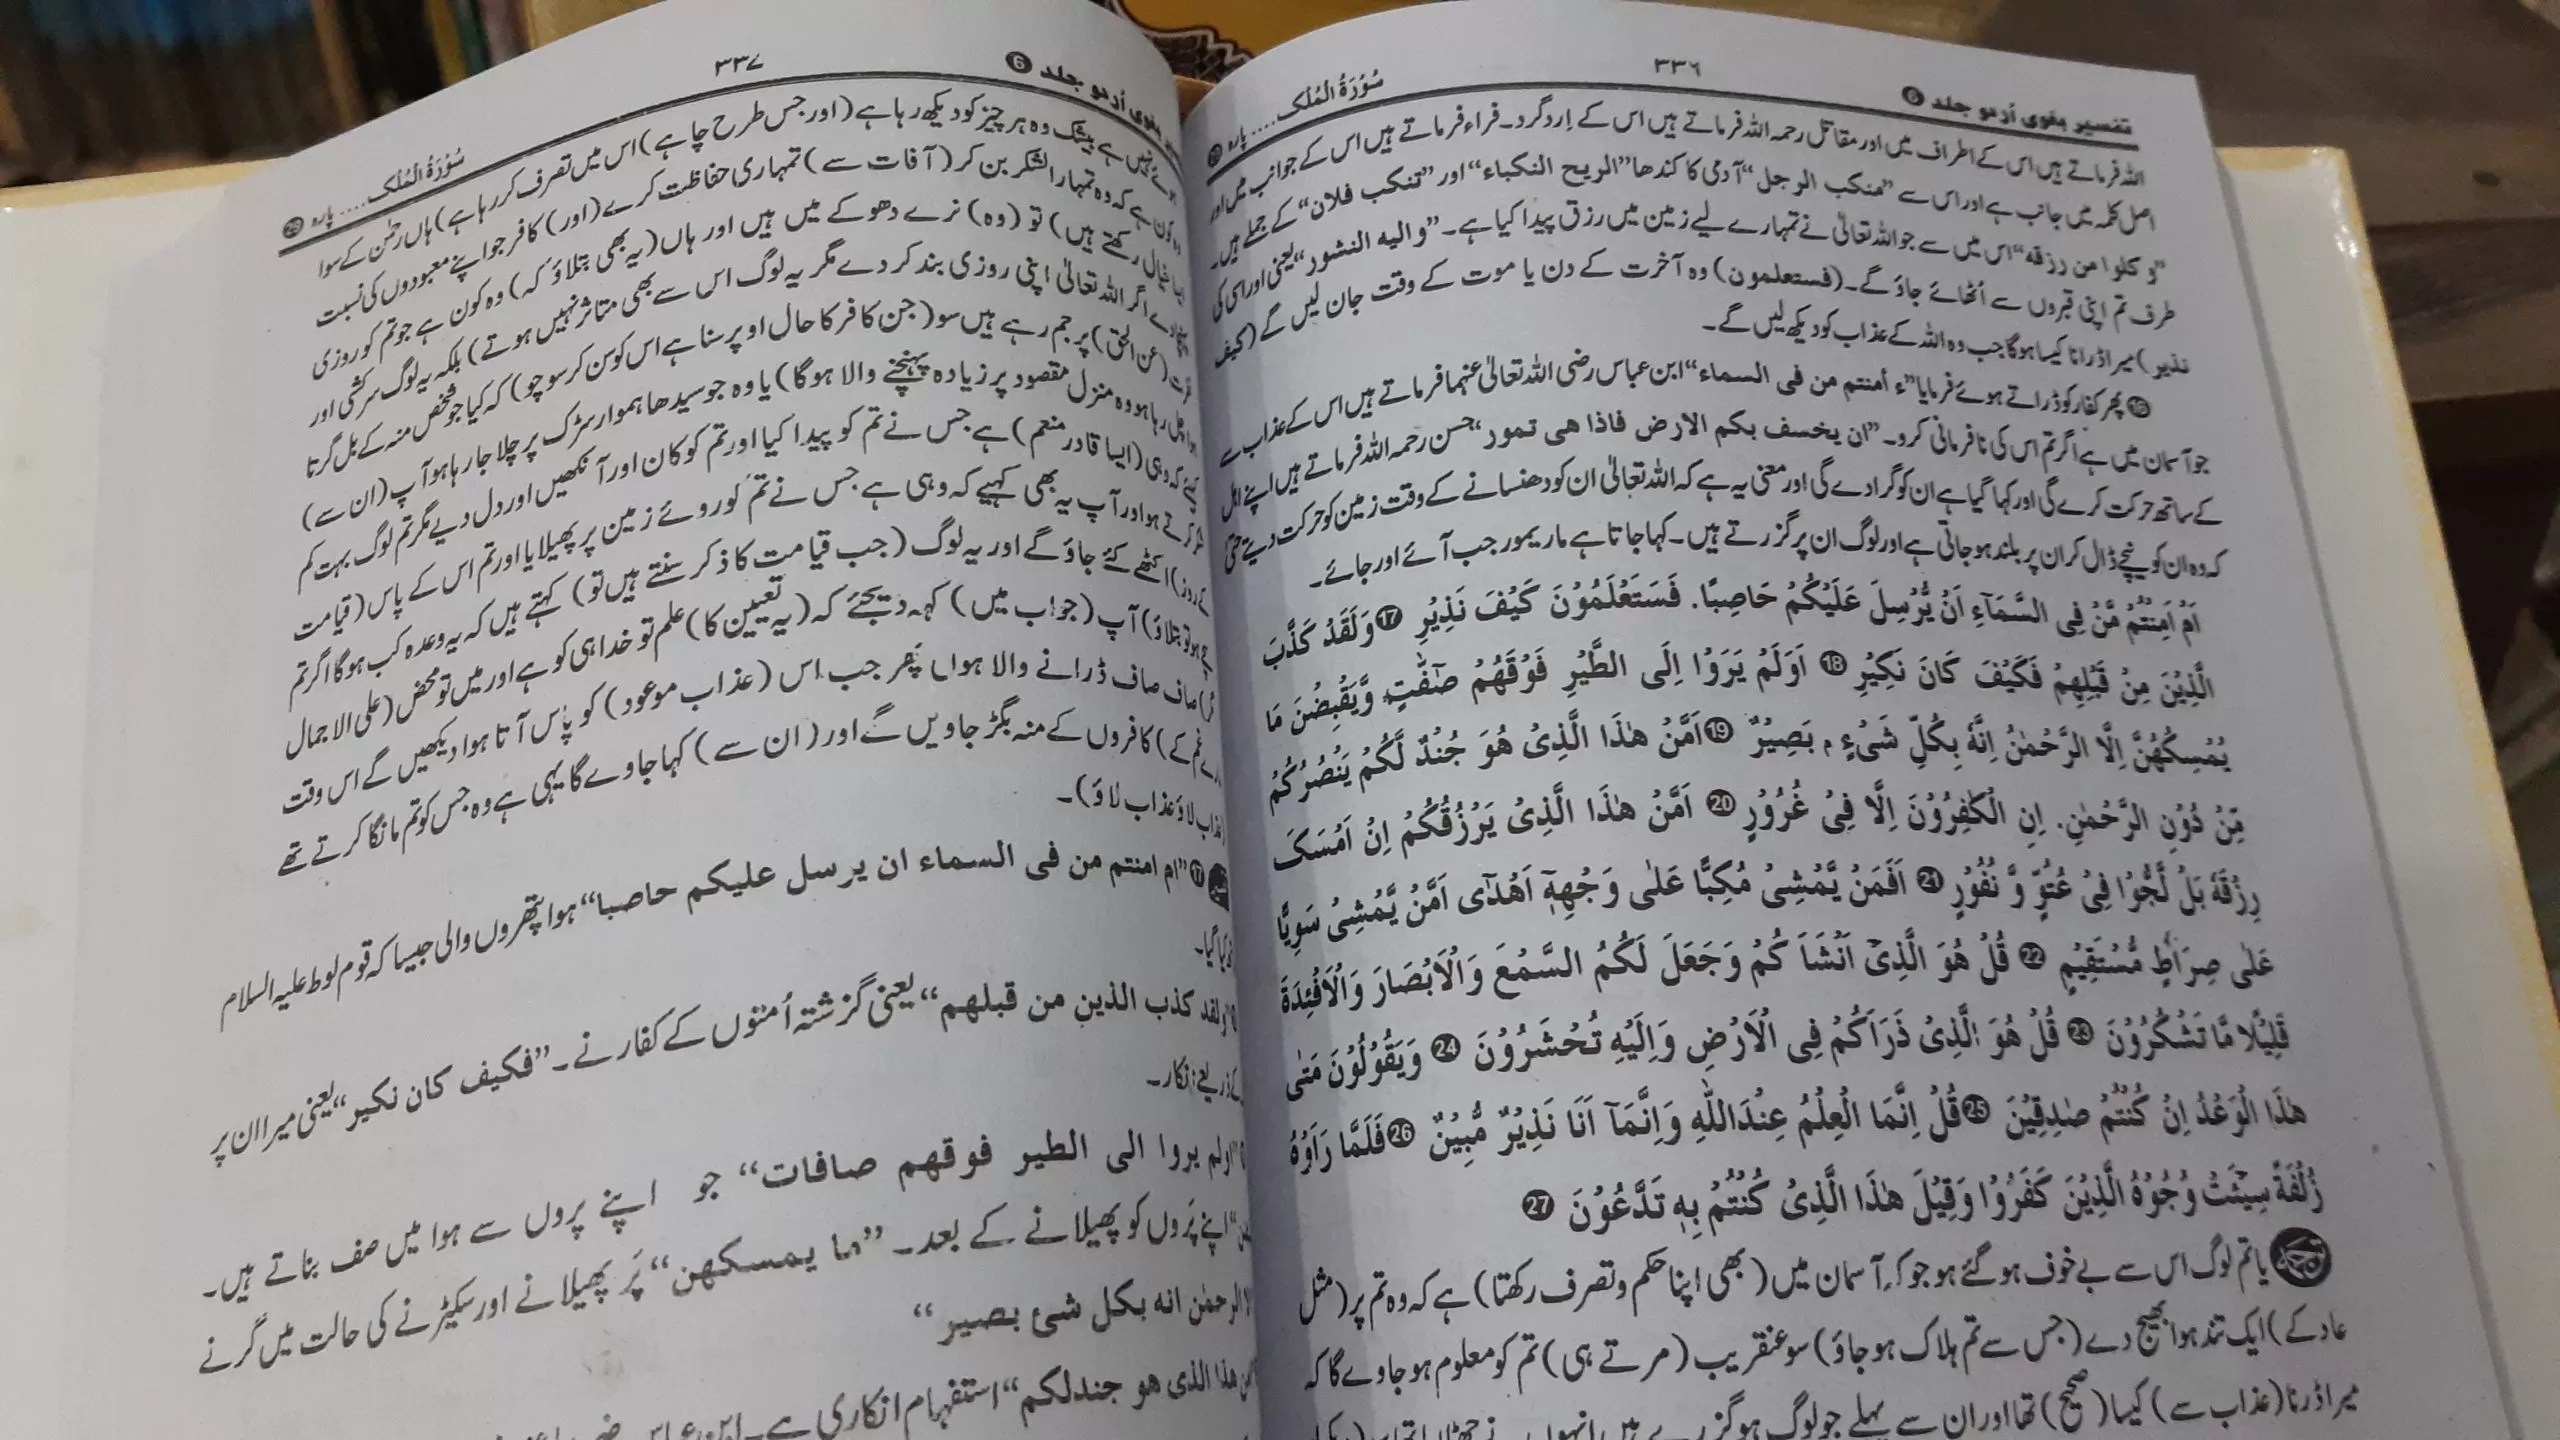 تفسیر بغوی اُردو جلد ❻ ۳۳۶ سُوْرَةُ الْمُلْک.... پارہ
اللہ فرماتے ہیں اس کے اطراف میں اور مقاتل رحمہ اللہ فرماتے ہیں اس کے اِردگرد۔ فراء فرماتے ہیں اس کے جوانب میں اور
اصل کلمہ میں جانب ہے اور اس سے ”منکب الرجل“ آدمی کا کندھا ”الریح النکباء“ اور ”تنکب فلان“ کے جملے ہیں۔
”و کلوا من رزقه“ اس میں سے جو اللہ تعالیٰ نے تمہارے لیے زمین میں رزق پیدا کیا ہے۔ ”والیه النشور“ یعنی اور اسی کی
طرف تم اپنی قبروں سے اُٹھائے جاؤ گے۔ (فستعلمون) وہ آخرت کے دن یا موت کے وقت جان لیں گے (کیف
نذیر) میرا ڈرانا کیسا ہوگا جب وہ اللہ کے عذاب کو دیکھ لیں گے۔
⓰ پھر کفار کو ڈراتے ہوئے فرمایا ”ء أمنتم من فی السماء“ ابن عباس رضی اللہ تعالیٰ عنہما فرماتے ہیں اس کے عذاب سے
جو آسمان میں ہے اگر تم اس کی نافرمانی کرو۔ ”ان یخسف بکم الارض فاذا هی تمور“ حسن رحمہ اللہ فرماتے ہیں اپنے اہل
کے ساتھ حرکت کرے گی اور کہا گیا ہے ان کو گرا دے گی اور معنی یہ ہے کہ اللہ تعالیٰ ان کو دھنسانے کے وقت زمین کو حرکت دیئے حتیٰ
کہ وہ ان کو نیچے ڈال کر ان پر بلند ہو جاتی ہے اور لوگ ان پر گزرتے ہیں۔ کہا جاتا ہے مار یمور جب آئے اور جائے۔
اَمْ اَمِنْتُمْ مَّنْ فِی السَّمَآءِ اَنْ یُّرْسِلَ عَلَیْکُمْ حَاصِبًا. فَسَتَعْلَمُوْنَ کَیْفَ نَذِیْرِ ⓱ وَلَقَدْ کَذَّبَ
الَّذِیْنَ مِنْ قَبْلِهِمْ فَکَیْفَ کَانَ نَکِیْرِ ⓲ اَوَلَمْ یَرَوْا اِلَی الطَّیْرِ فَوْقَهُمْ صٰٓفّٰتٍ وَّیَقْبِضْنَ مَا
یُمْسِکُهُنَّ اِلَّا الرَّحْمٰنُ اِنَّهٗ بِکُلِّ شَیْءٍ م بَصِیْرٌ ⓳ اَمَّنْ هٰذَا الَّذِیْ هُوَ جُنْدٌ لَّکُمْ یَنْصُرُکُمْ
مِّنْ دُوْنِ الرَّحْمٰنِ. اِنِ الْکٰفِرُوْنَ اِلَّا فِیْ غُرُوْرٍ ⓴ اَمَّنْ هٰذَا الَّذِیْ یَرْزُقُکُمْ اِنْ اَمْسَکَ
رِزْقَهٗ بَلْ لَّجُّوْا فِیْ عُتُوٍّ وَّ نُفُوْرٍ ㉑ اَفَمَنْ یَّمْشِیْ مُکِبًّا عَلٰی وَجْهِهٖٓ اَهْدٰٓی اَمَّنْ یَّمْشِیْ سَوِیًّا
عَلٰی صِرَاطٍ مُّسْتَقِیْمٍ ㉒ قُلْ هُوَ الَّذِیْٓ اَنْشَاَ کُمْ وَجَعَلَ لَکُمُ السَّمْعَ وَالْاَبْصَارَ وَالْاَفْئِدَةَ
قَلِیْلًا مَّا تَشْکُرُوْنَ ㉓ قُلْ هُوَ الَّذِیْ ذَرَاَکُمْ فِی الْاَرْضِ وَاِلَیْهِ تُحْشَرُوْنَ ㉔ وَیَقُوْلُوْنَ مَتٰی
هٰذَا الْوَعْدُ اِنْ کُنْتُمْ صٰدِقِیْنَ ㉕ قُلْ اِنَّمَا الْعِلْمُ عِنْدَاللّٰهِ وَاِنَّمَآ اَنَا نَذِیْرٌ مُّبِیْنٌ ㉖ فَلَمَّا رَاَوْهُ
زُلْفَةً سِیْٓئَتْ وُجُوْهُ الَّذِیْنَ کَفَرُوْا وَقِیْلَ هٰذَا الَّذِیْ کُنْتُمْ بِهٖ تَدَّعُوْنَ ㉗
یا تم لوگ اس سے بے خوف ہو گئے ہو جو کہ آسمان میں (بھی اپنا حکم و تصرف رکھتا) ہے کہ وہ تم پر (مثل
عاد کے) ایک تند ہوا بھیج دے (جس سے تم ہلاک ہو جاؤ) سو عنقریب (مرتے ہی) تم کو معلوم ہو جاوے گا کہ
میرا ڈرنا (عذاب سے) کیسا (صحیح) تھا اور ان سے پہلے جو لوگ ہو گزرے ہیں انہوں نے جھٹلایا تھا
بغوی اُردو جلد ❻ ۳۳۷ سُوْرَةُ الْمُلْک.... پارہ ㉙
نہیں ہے بیشک وہ ہر چیز کو دیکھ رہا ہے (اور جس طرح چاہے) اس میں تصرف کر رہا ہے) ہاں رحمٰن کے سوا
کون ہے کہ وہ تمہارا لشکر بن کر (آفات سے) تمہاری حفاظت کرے (اور) کافر جو اپنے معبودوں کی نسبت
خیال رکھتے ہیں) تو (وہ) نرے دھوکے میں ہیں اور ہاں (یہ بھی بتلاؤ کہ) وہ کون ہے جو تم کو روزی
اگر اللہ تعالیٰ اپنی روزی بند کر دے مگر یہ لوگ اس سے بھی متاثر نہیں ہوتے) بلکہ یہ لوگ سرکشی اور
(عن الحق) پر جم رہے ہیں سو (جن کافر کا حال اوپر سنا ہے اس کو سن کر سوچو) کہ کیا جو شخص منہ کے بل گرتا
چل رہا ہو وہ منزل مقصود پر زیادہ پہنچنے والا ہوگا) یا وہ جو سیدھا ہموار سڑک پر چلا جا رہا ہو آپ (ان سے)
کہ وہی (ایسا قادر منعم) ہے جس نے تم کو پیدا کیا اور تم کو کان اور آنکھیں اور دل دیے مگر تم لوگ بہت کم
کرتے ہو اور آپ یہ بھی کہیے کہ وہی ہے جس نے تم کو روئے زمین پر پھیلایا اور تم اس کے پاس (قیامت
کے روز) اکٹھے کئے جاؤ گے اور یہ لوگ (جب قیامت کا ذکر سنتے ہیں تو) کہتے ہیں کہ یہ وعدہ کب ہوگا اگر تم
ہو تو بتلاؤ) آپ (جواب میں) کہہ دیجئے کہ (یہ تعیین کا) علم تو خدا ہی کو ہے اور میں تو محض (علی الاجمال
صاف صاف ڈرانے والا ہوں پھر جب اس (عذاب موعود) کو پاس آتا ہوا دیکھیں گے اس وقت
کے) کافروں کے منہ بگڑ جاویں گے اور (ان سے) کہا جاوے گا یہی ہے وہ جس کو تم مانگا کرتے تھے
عذاب لاؤ عذاب لاؤ)۔
⓱ ”ام امنتم من فی السماء ان یرسل علیکم حاصبا“ ہوا پتھروں والی جیسا کہ قوم لوط علیہ السلام
کیا گیا۔
”ولقد کذب الذین من قبلهم“ یعنی گزشتہ اُمتوں کے کفار نے۔ ”فکیف کان نکیر“ یعنی میرا ان پر
کے ذریعے انکار۔
”اولم یروا الی الطیر فوقهم صافات“ جو اپنے پروں سے ہوا میں صف بناتے ہیں۔
اپنے پروں کو پھیلانے کے بعد۔ ”ما یمسکهن“ پَر پھیلانے اور سکیڑنے کی حالت میں گرنے
الرحمٰن انه بکل شئ بصیر“
هذا الذی هو جندلکم“ استفہام انکاری ہے۔ ابن عباس